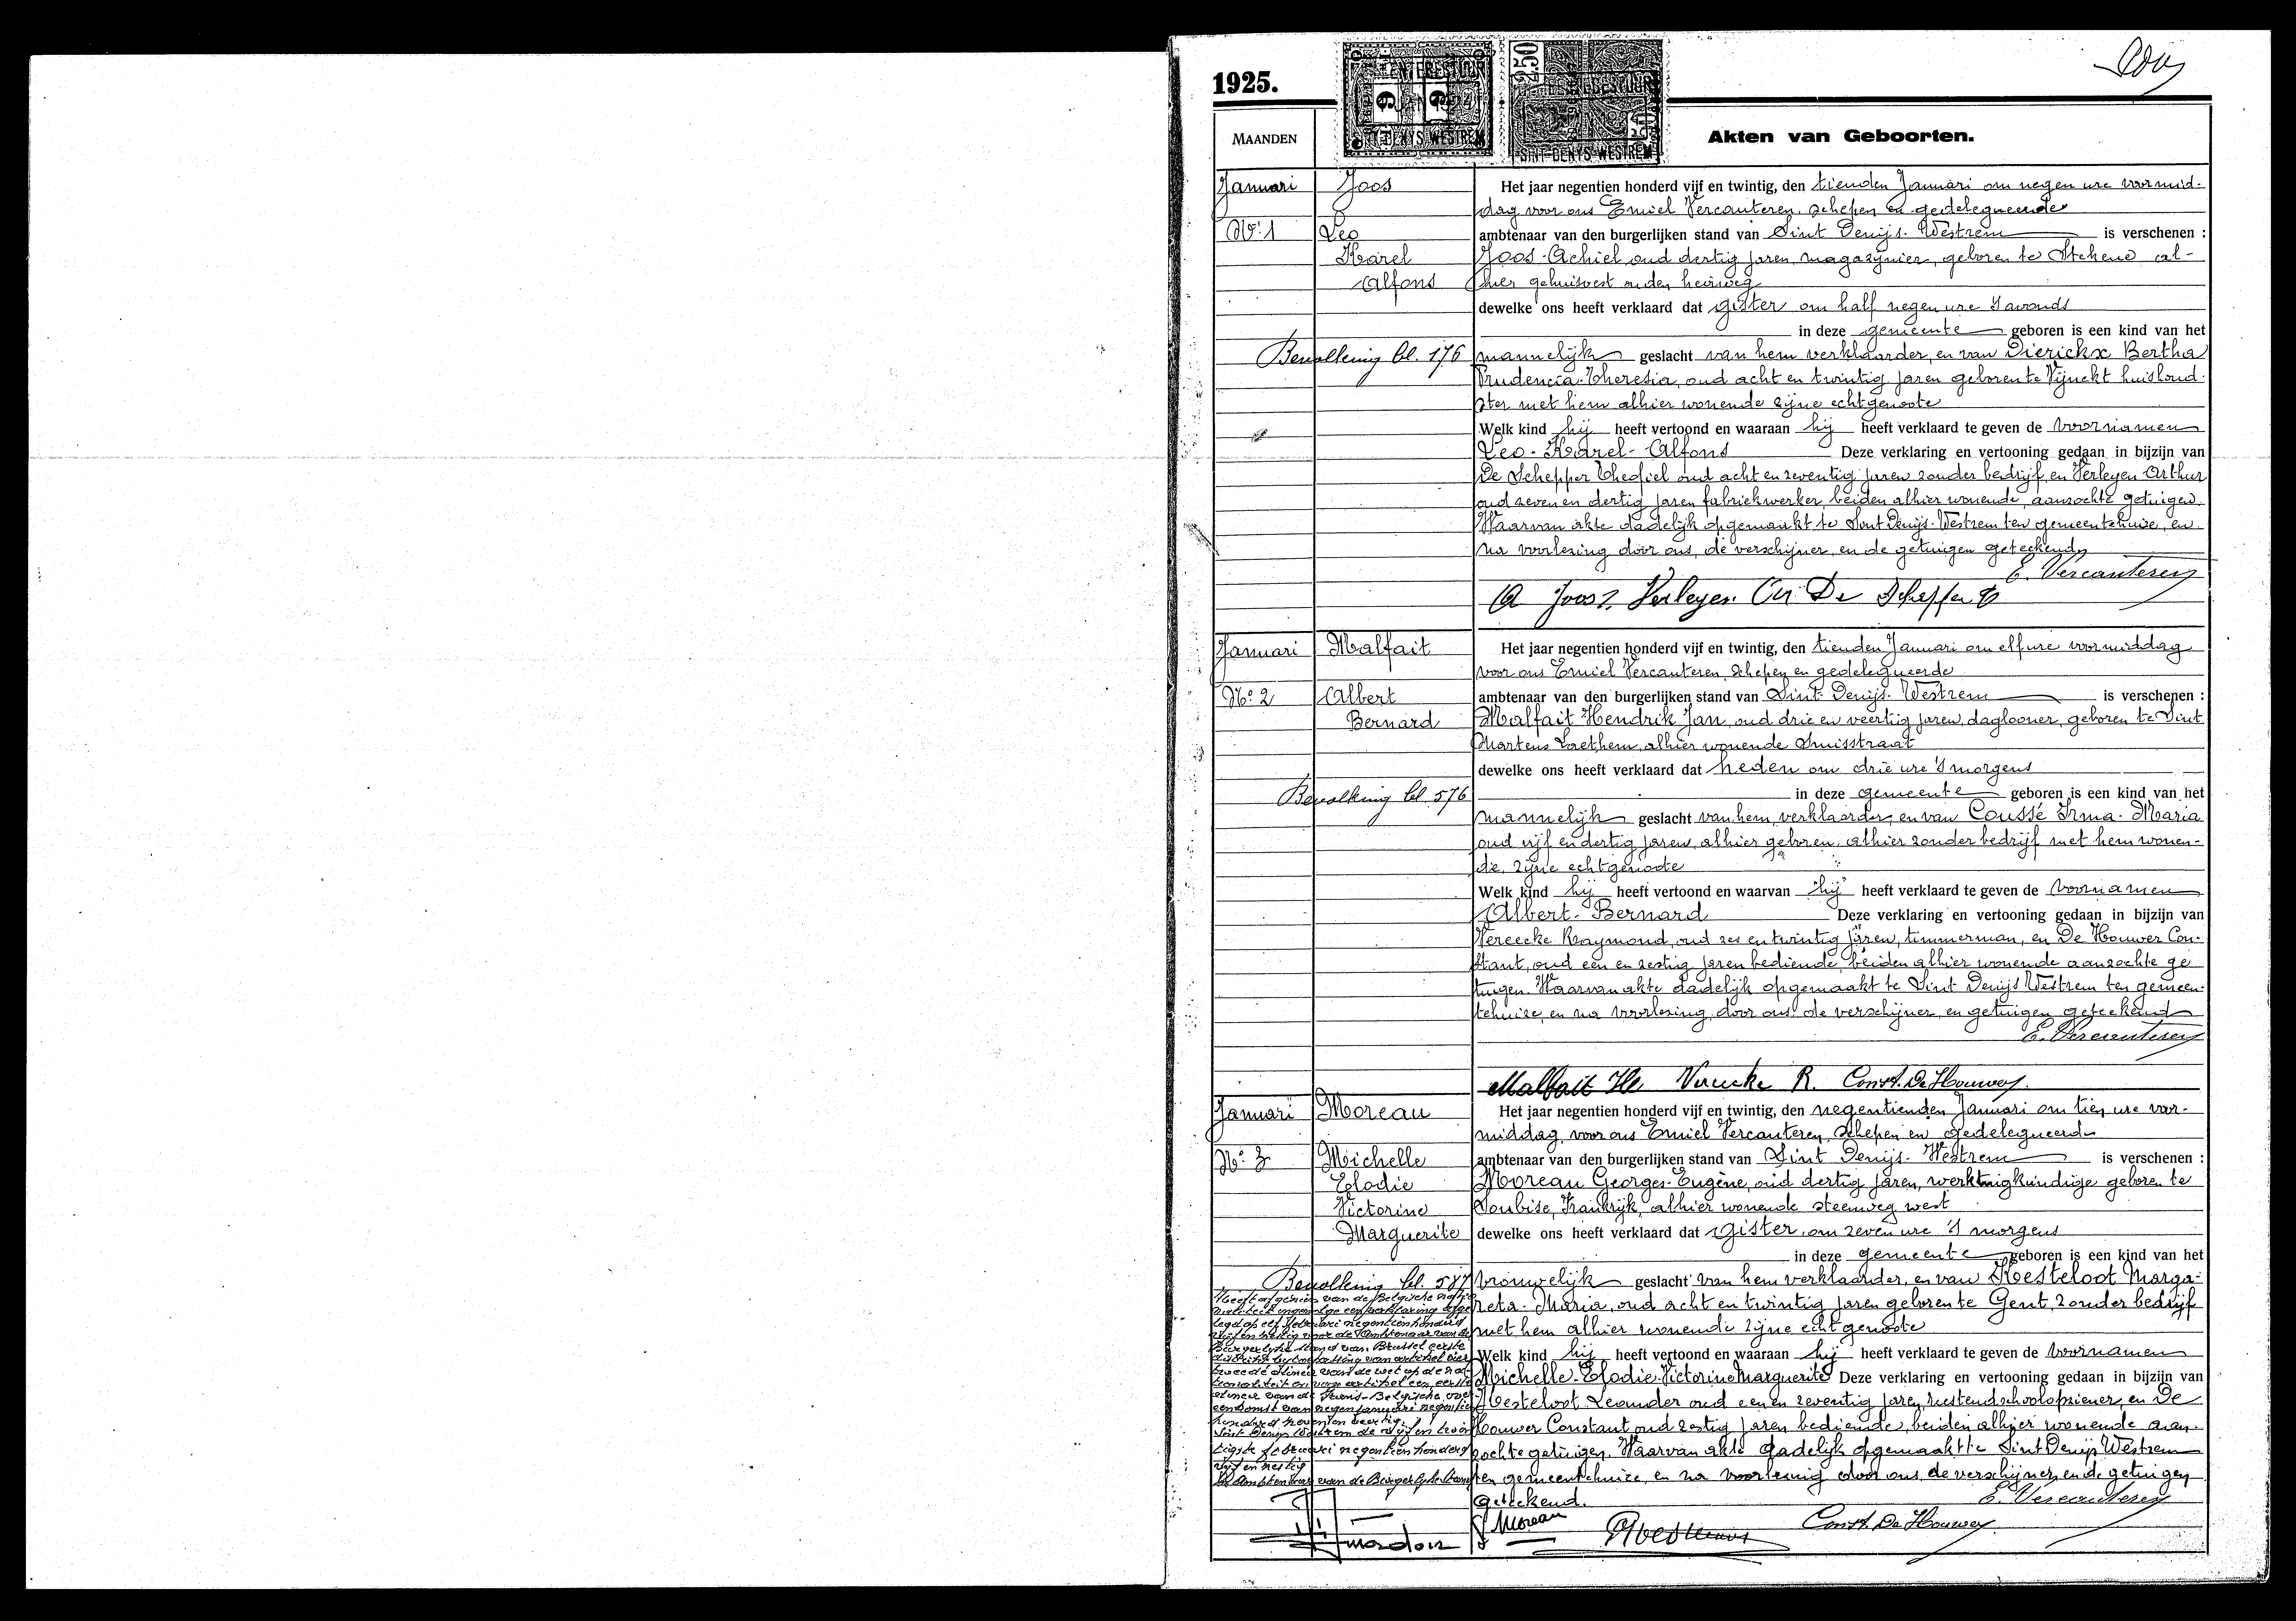 1925.
MAANDEN
Akten van Geboorten.
SINT-DENYS-WESTREM
Januari Joos
Het jaar negentien honderd vijf en twintig, den tienden Januari om negen ure voormid-
dag voor ons Emiel Vercauteren, schepen en gedelegueerde
No. 1 Leo
ambtenaar van den burgerlijken stand van Sint Denijs-Westrem is verschenen :
Karel
Joos Achiel oud dertig jaren, magazijnier, geboren te Stekene al-
Alfons
hier gehuisvest ouden heirweg
dewelke ons heeft verklaard dat gister om half negen ure 's avonds
in deze gemeente geboren is een kind van het
Bevolking bl. 176
mannelijk geslacht van hem verklaarder, en van Dierickx Bertha
Prudencia-Theresia, oud acht en twintig jaren geboren te Vijnckt huishoud-
ster met hem alhier wonende zijne echtgenoote
Welk kind hij heeft vertoond en waaraan hij heeft verklaard te geven de voornamen
Leo-Karel-Alfons Deze verklaring en vertooning gedaan in bijzijn van
De Schepper Theofiel oud acht en zeventig jaren zonder bedrijf, en Verleyen Arthur
oud zeven en dertig jaren fabriekwerker, beiden alhier wonende, aanzochte getuigen.
Waarvan akte dadelijk opgemaakt te Sint Denijs-Westrem ten gemeentehuize, en
na voorlezing door ons, de verschijner, en de getuigen geteekend
E. Vercauteren
A Joos Verleyen Ar De Schepper
Januari Malfait
Het jaar negentien honderd vijf en twintig, den tienden Januari om elf ure voormiddag
voor ons Emiel Vercauteren, Schepen en gedelegueerde
No. 2 Albert
ambtenaar van den burgerlijken stand van Sint-Denijs-Westrem is verschenen :
Bernard
Malfait Hendrik Jan, oud drie en veertig jaren, daglooner, geboren te Sint
Martens Laethem, alhier wonende
dewelke ons heeft verklaard dat heden om drie ure 's morgens
in deze gemeente geboren is een kind van het
Bevolking bl. 576
mannelijk geslacht van hem, verklaarder, en van Coussé Irma-Maria
oud vijf en dertig jaren, alhier geboren, alhier zonder bedrijf met hem wonen-
de, zijne echtgenoote
Welk kind hij heeft vertoond en waarvan hij heeft verklaard te geven de voornamen
Albert-Bernard Deze verklaring en vertooning gedaan in bijzijn van
Vereecke Raymond, oud zes en twintig jaren, timmerman, en De Houwer Con-
stant, oud een en zestig jaren bediende, beiden alhier wonende aanzochte ge
tuigen. Waarvan akte dadelijk opgemaakt te Sint Denijs Westrem ten gemeen-
tehuize, en na voorlezing door ons, de verschijner, en getuigen geteekend
E. Vercauteren
Malfait He Vereecke R. Const. De Houwer.
Januari Moreau
Het jaar negentien honderd vijf en twintig, den negentienden Januari om tien ure voor-
middag, voor ons Emiel Vercauteren, Schepen en gedelegueerde
No. 3 Michelle
ambtenaar van den burgerlijken stand van Sint Denijs-Westrem is verschenen :
Elodie
Moreau Georges-Eugène, oud dertig jaren, werktuigkundige geboren te
Victorine
Soubise, Frankrijk, alhier wonende steenweg west
Marguerite
dewelke ons heeft verklaard dat gister om zeven ure 's morgens
in deze gemeente geboren is een kind van het
Bevolking bl. 587
vrouwelijk geslacht van hem verklaarder, en van Hesteloot Marga-
reta-Maria, oud acht en twintig jaren geboren te Gent, zonder bedrijf
met hem alhier wonende zijne echtgenoote
Welk kind hij heeft vertoond en waaraan hij heeft verklaard te geven de voornamen
Michelle-Elodie-Victorine Marguerite Deze verklaring en vertooning gedaan in bijzijn van
Hesteloot Leander oud een en zeventig jaren, rustend schoolopziener, en De
Houwer Constant oud zestig jaren bediende, beiden alhier wonende aan-
zochte getuigen. Waarvan akte dadelijk opgemaakt te Sint Denijs Westrem
ten gemeentehuize, en na voorlezing door ons, de verschijner, en de getuigen
geteekend.
E. Vercauteren
Heeft afgezien van de Belgische natio
naliteit ingevolge een verklaring afge
legd op een februari negentienhonderd
vijf en zestig voor de Ambtenaar van de
Burgerlijke Stand van Brussel eerste
district bij toepassing van artikel vier
tweede alinea van de wet op de nat-
ionaliteit en van artikel een, eerste
alinea van de Frans-Belgische over
eenkomst van negen januari negentien
honderd zeven en veertig.
Sint Denijs Westrem de vijf en twin
tigste februari negentienhonderd
vijf en zestig
De Ambtenaar van de Burgerlijke Stand
Moreau
Const. De Houwer